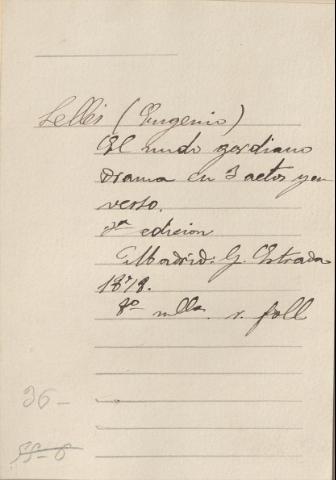 Sellés (Eugenio)
El nudo gordiano
Drama en 3 actos y en
verso.
2ª edicion
Madrid: G. Estrada
1878.
8º mlla. r. foll
36-
55-6